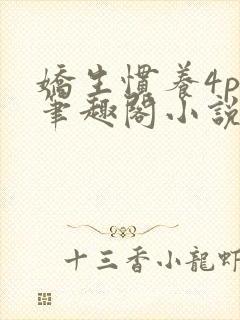 嬌生慣養4p
筆趣閣小說
十三香小龍蝦